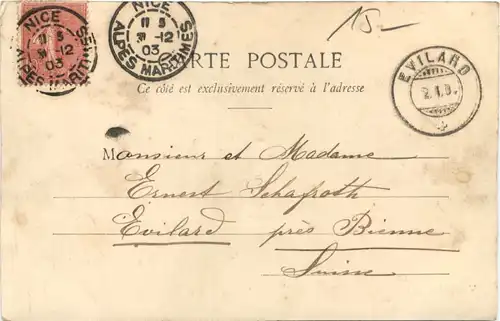 NICE
11 5
31-12
03
ALPES MARITIMES
NICE
11 5
31-12
03
ALPES MARITIMES
15-
RTE POSTALE
Ce côté est exclusivement réservé à l'adresse
EVILARD
2.I.
Monsieur et Madame
Ernest Schafroth
Evilard près Bienne
Suisse